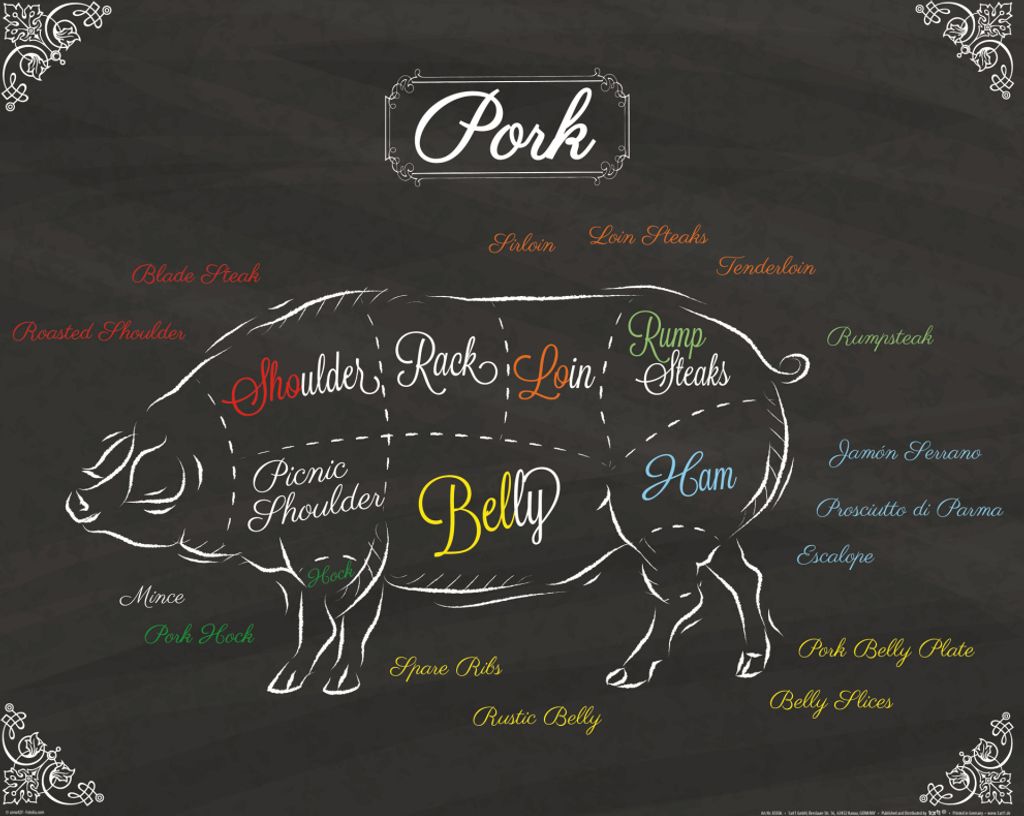 Pork
Sirloin
Loin Steaks
Tenderloin
Blade Steak
Roasted Shoulder
Shoulder
Rack
Loin
Rump
Steaks
Rumpsteak
Picnic
Shoulder
Belly
Ham
Jamón Serrano
Prosciutto di Parma
Escalope
Hock
Mince
Pork Hock
Spare Ribs
Rustic Belly
Pork Belly Plate
Belly Slices